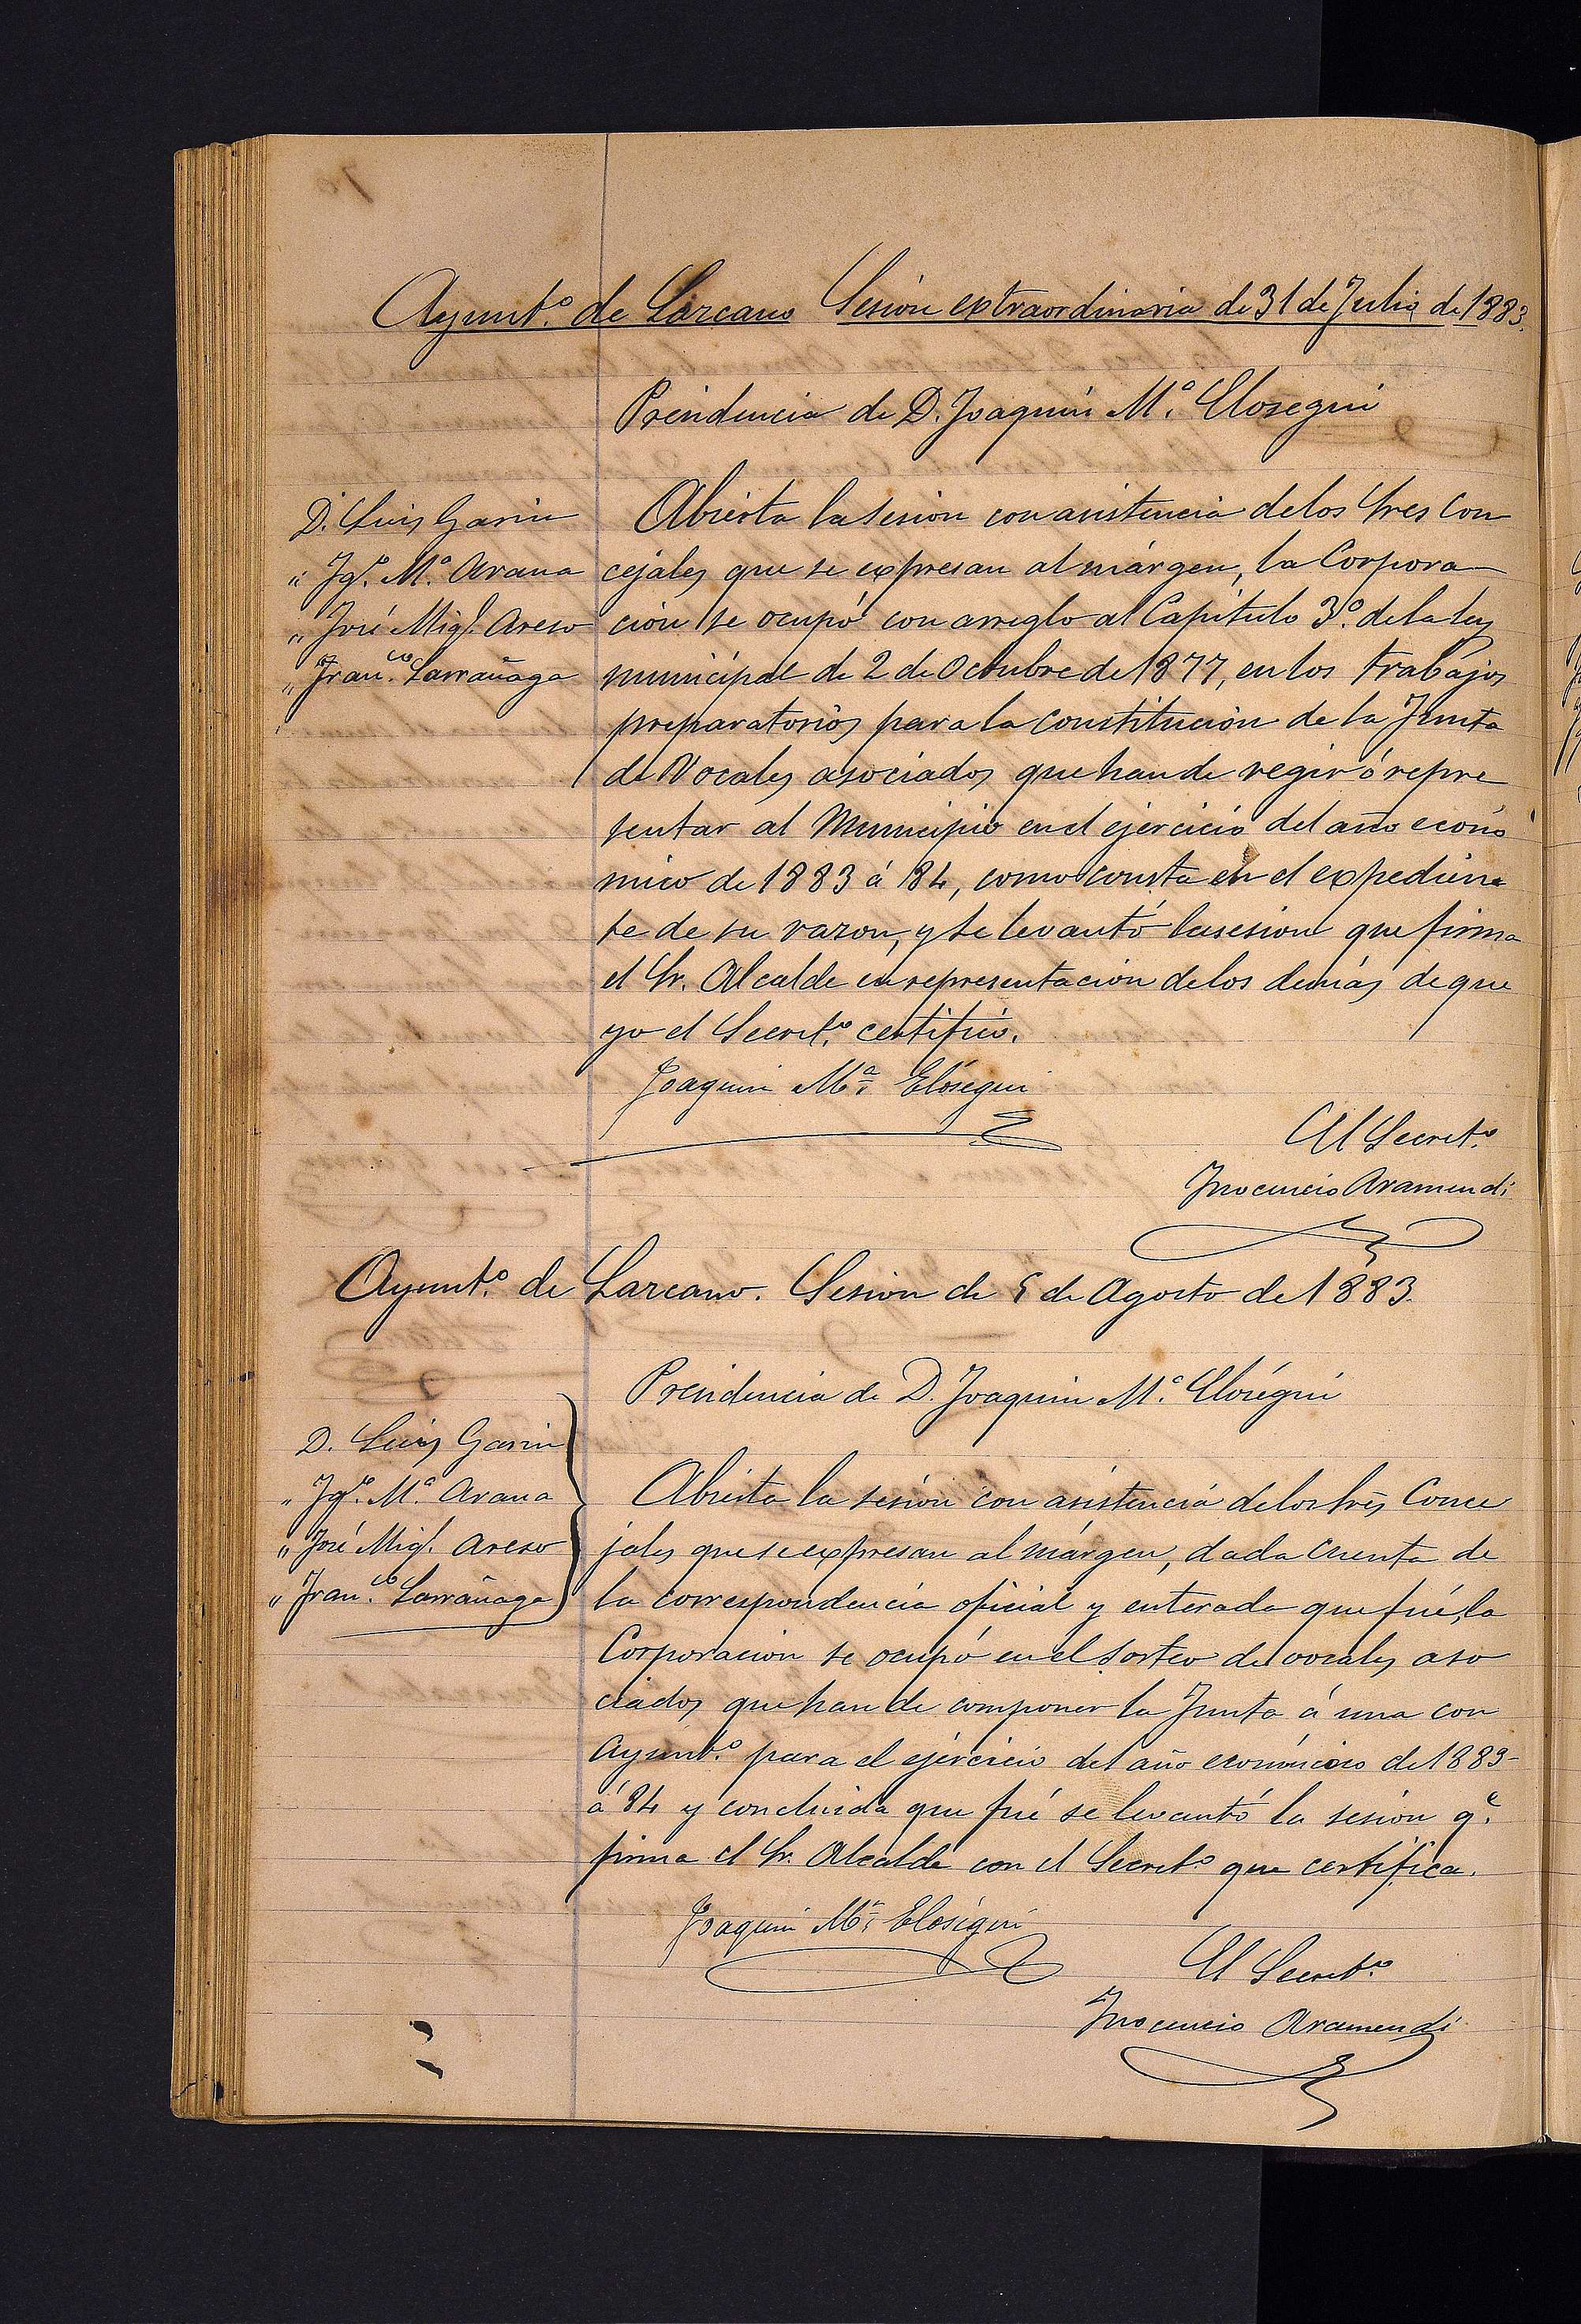 Ayunt.º de Lazcano Sesion extraordinaria de 31 de Julio de 1883.
Presidencia de D. Joaquin M.ª Elosegui
D. Luis Garin
" Ig.º M.ª Arana
" José Mig.l Areso
" Fran.co Larrañaga
Abierta la sesion con asistencia de los Sres Con
cejales que se expresan al márgen, la Corpora
ción se ocupó con arreglo al Capítulo 3.º de la ley
municipal de 2 de Octubre de 1877, en los trabajos
preparatorios para la constitución de la Junta
de Vocales asociados que han de regir ó repre
sentar al Municipio en el ejercicio del año econó
mico de 1883 á 84, como consta en el expedien
te de su razon, y se levantó la sesion que firma
el Sr. Alcalde en representación de los demás de que
yo el Secret.º certifico.
Joaquin M.ª Elósegui
El Secret.º
Inocencio Aramendi
Ayunt.º de Lazcano. Sesion de 5 de Agosto de 1883.
Presidencia de D. Joaquin M.ª Elósegui
D. Luis Garin
" Ig.º M.ª Arana
" José Mig.l Areso
" Fran.co Larrañaga
Abierta la sesión con asistencia de los Sres Conce
jales que se expresan al márgen, dada cuenta de
la correspondencia oficial y enterada que fué, la
Corporación se ocupó en el sorteo de vocales aso
ciados que han de componer la Junta á una con
Ayunt.º para el ejercicio del año económico de 1883-
á 84 y concluida que fué se levantó la sesión q.e
firma el Sr. Alcalde con el Secret.º que certifica.
Joaquin M.ª Elósegui
El Secret.º
Inocencio Aramendi